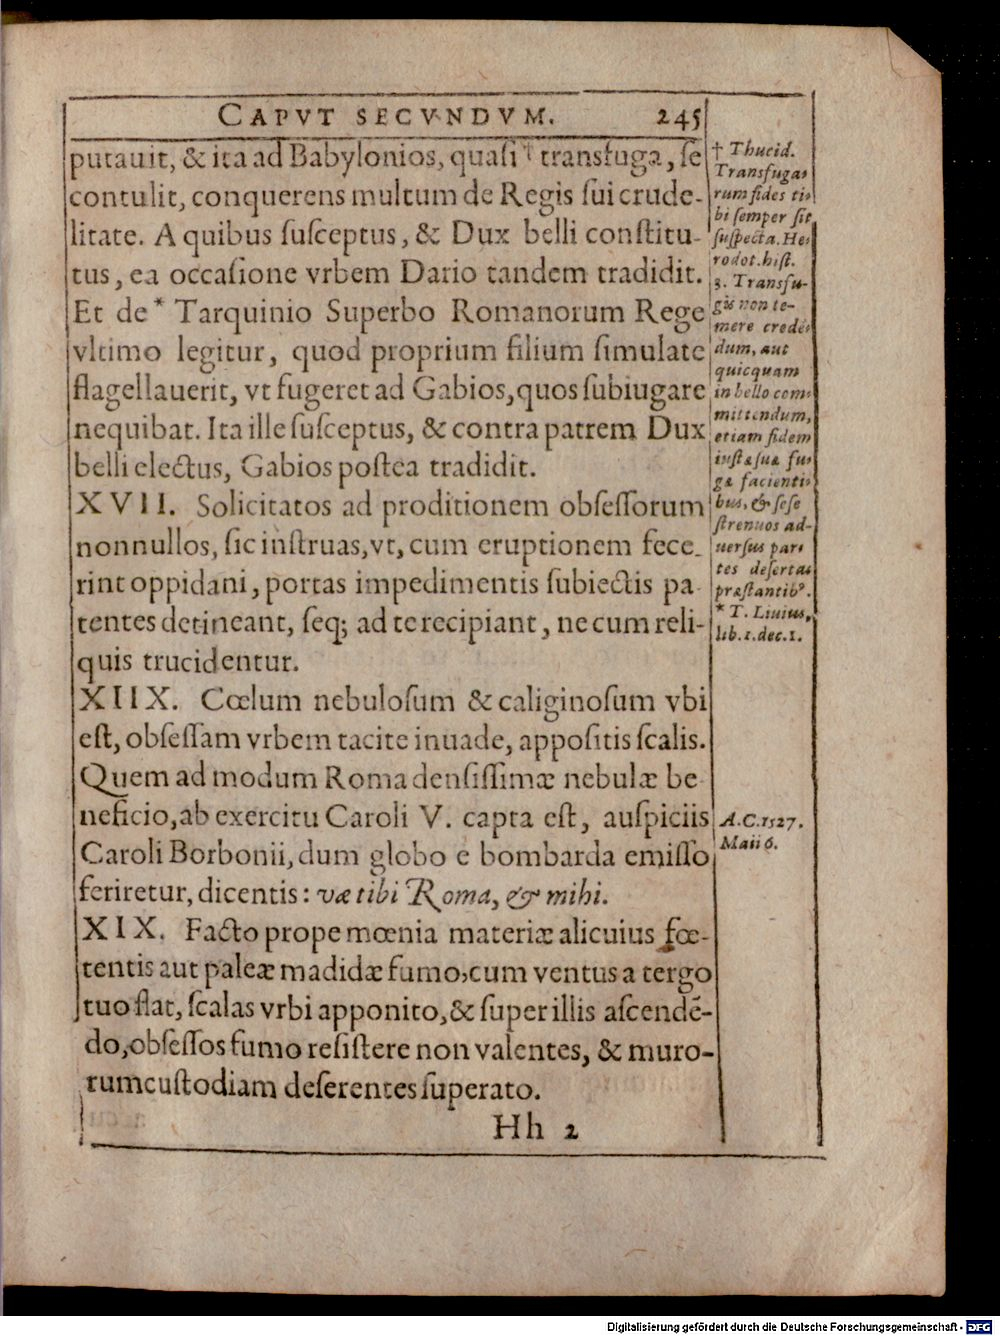 CAPVT SECVNDVM. 245
putauit, & ita ad Babylonios, quaſi † transfuga, ſe
contulit, conquerens multum de Regis ſui crude-
litate. A quibus ſuſceptus, & Dux belli conſtitu-
tus, ea occaſione vrbem Dario tandem tradidit.
Et de * Tarquinio Superbo Romanorum Rege
vltimo legitur, quod proprium filium ſimulate
flagellauerit, vt fugeret ad Gabios, quos ſubiugare
nequibat. Ita ille ſuſceptus, & contra patrem Dux
belli electus, Gabios poſtea tradidit.
XVII. Solicitatos ad proditionem obſeſſorum
nonnullos, ſic inſtruas, vt, cum eruptionem fece-
rint oppidani, portas impedimentis ſubiectis pa-
tentes detineant, ſeq; ad te recipiant, ne cum reli-
quis trucidentur.
XIIX. Cœlum nebuloſum & caliginoſum vbi
eſt, obſeſſam vrbem tacite inuade, appoſitis ſcalis.
Quem ad modum Roma denſiſſimæ nebulæ be-
neficio, ab exercitu Caroli V. capta eſt, auſpiciis
Caroli Borbonii, dum globo e bombarda emiſſo
feriretur, dicentis: væ tibi Roma, & mihi.
XIX. Facto prope mœnia materiæ alicuius fœ-
tentis aut paleæ madidæ fumo, cum ventus a tergo
tuo flat, ſcalas vrbi apponito, & ſuper illis aſcendē-
do, obſeſſos fumo reſiſtere non valentes, & muro-
rum cuſtodiam deſerentes ſuperato.
Hh 2
† Thucid.
Transfuga-
rum fides ti-
bi ſemper ſit
ſuſpecta. He-
rodot. hiſt.
3. Transfu-
gis non te-
mere credē-
dum, aut
quicquam
in bello com-
mittendum,
etiam fidem
iuſtæ ſuæ fu-
gæ facienti-
bus, & ſeſe
ſtrenuos ad-
uerſus par-
tes deſertas
præſtantibꝰ.
* T. Liuius,
lib. 1. dec. 1.
A.C. 1527.
Maii 6.
Digitalisierung gefördert durch die Deutsche Forschungsgemeinschaft - DFG